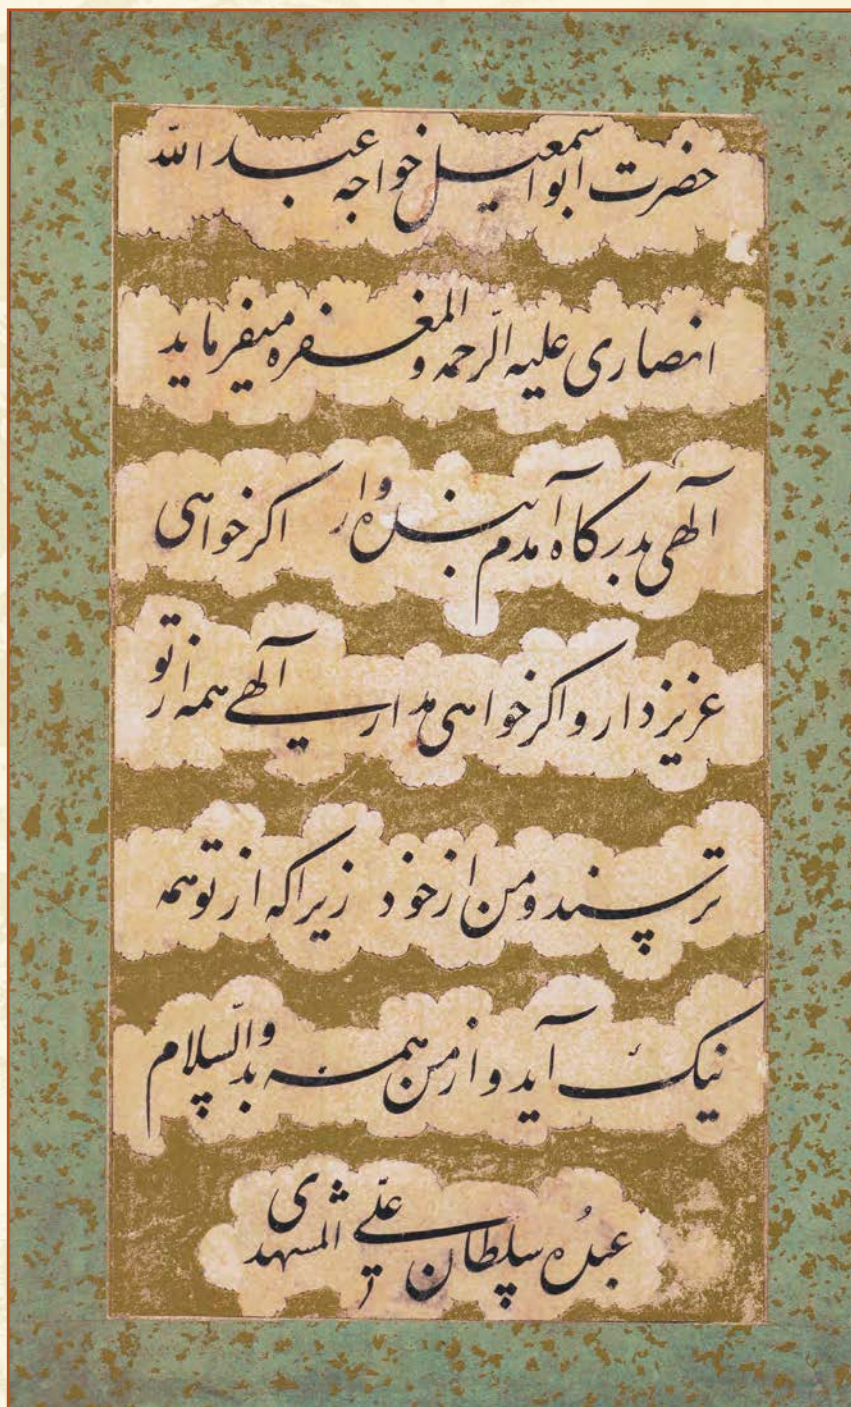 حضرت ابو اسمعیل خواجه عبد الله
انصاری علیه الرّحمه و المغفره میفرماید
الهی بدرکاه آمدم بنده وار اکر خواهی
عزیز دار و اکر خواهی مدار الهی همه از تو
ترسند و من از خود زیرا که از تو همه
نیک آید و از من همه بد والسّلام
عبدُه سلطان علی المشهدی